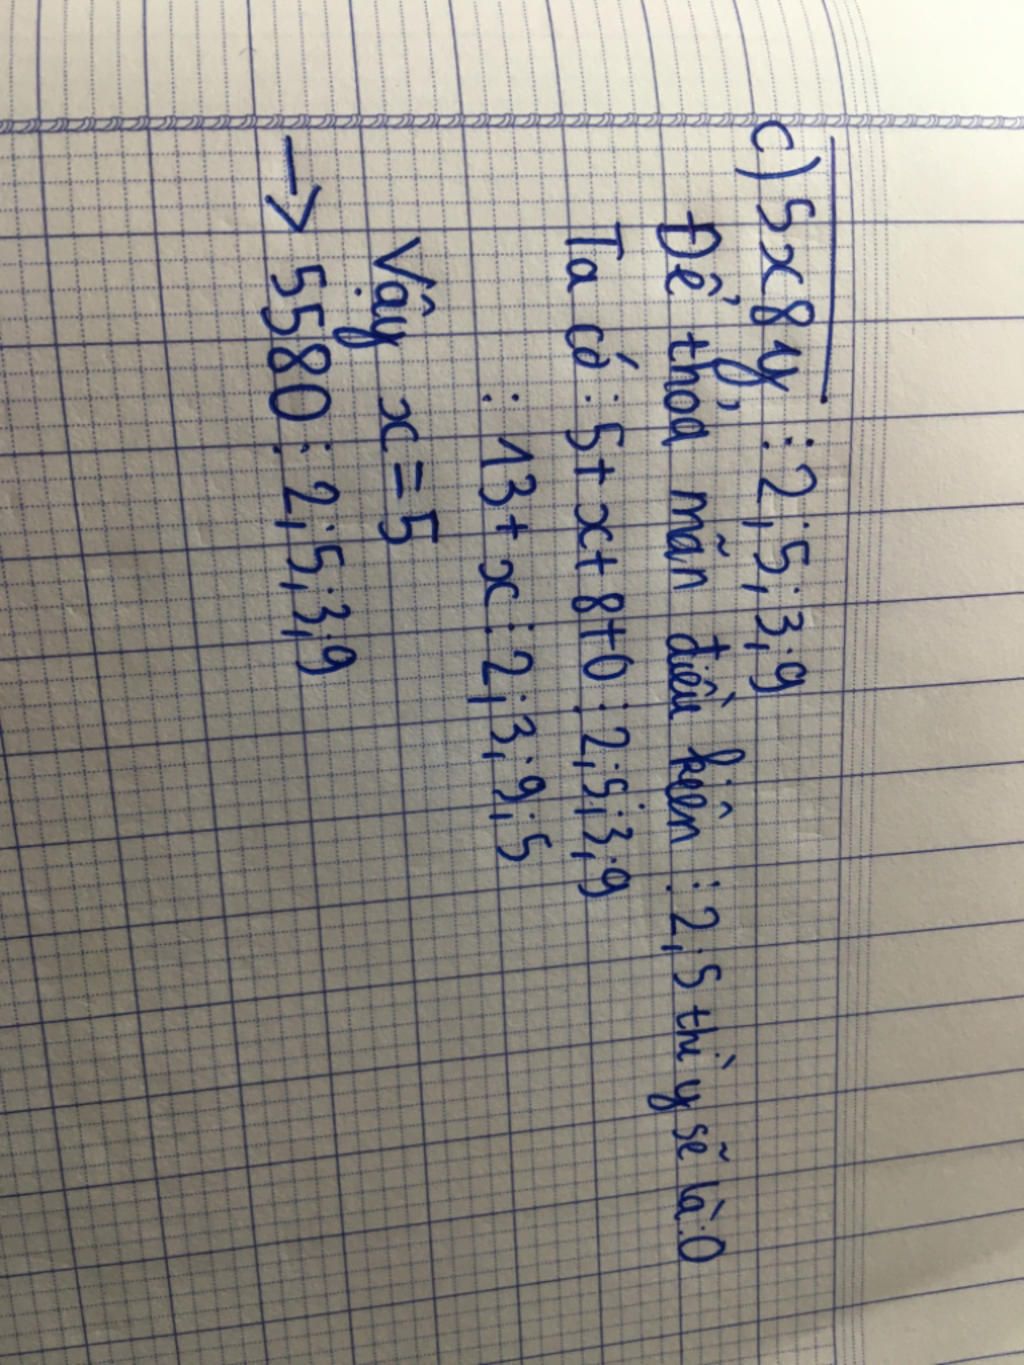 c) 5x8y ⋮ 2; 5; 3; 9
Để thoả mãn điều kiện ⋮ 2; 5 thì y sẽ là: 0
Ta có: 5+x+8+0 ⋮ 2; 5; 3; 9
: 13+x ⋮ 2; 3; 9; 5
Vậy x=5
→ 5580 ⋮ 2; 5; 3; 9